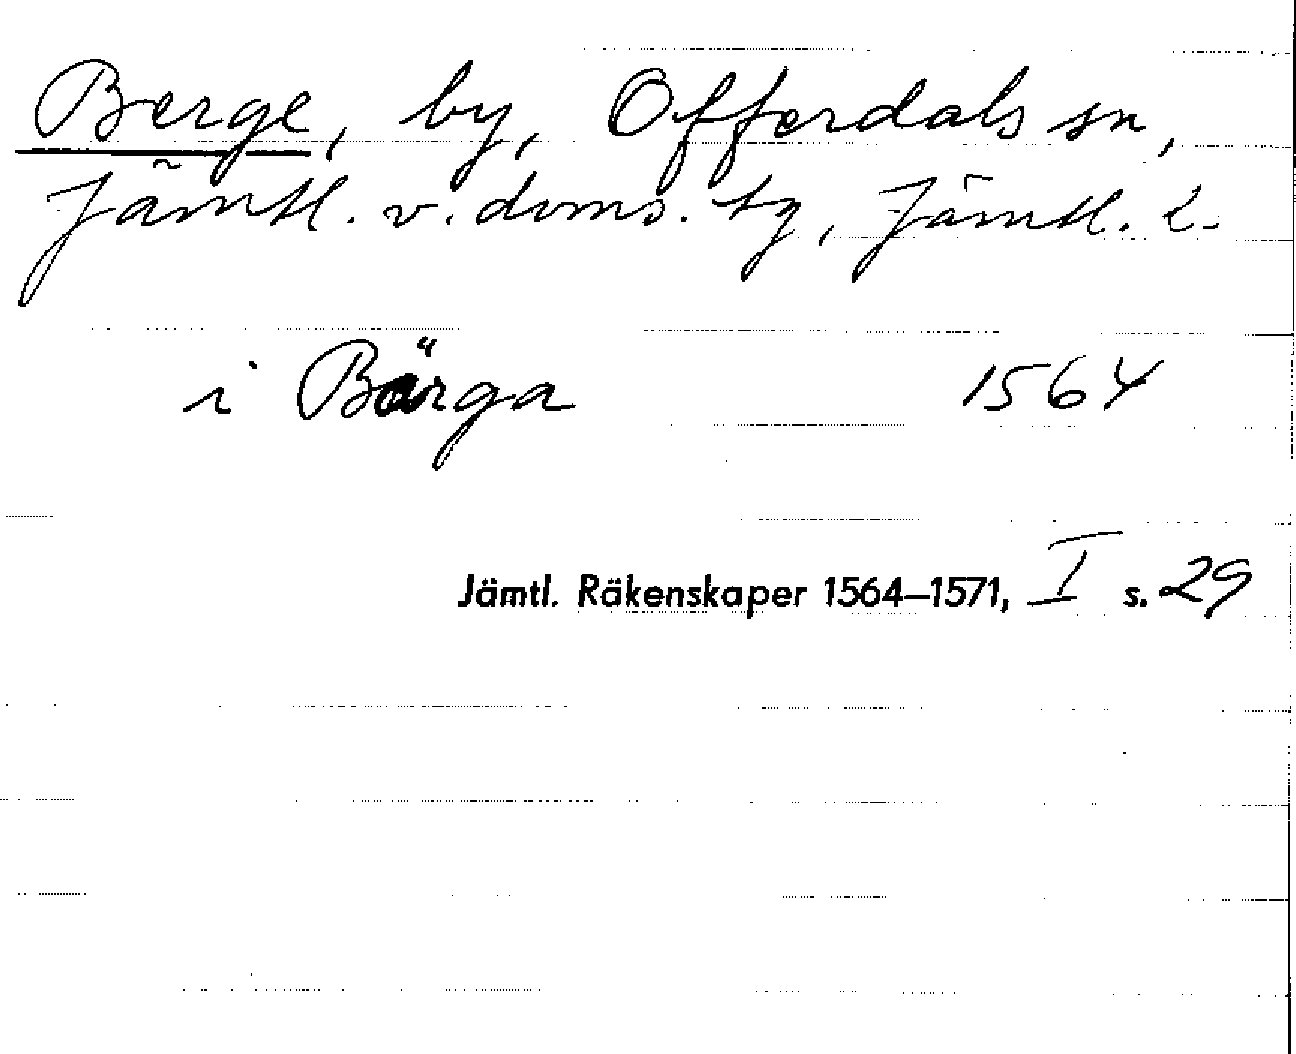 Berge, by, Offerdals sn,
Jämtl. v. doms. tg, Jämtl. l.
i Bärga 1564
Jämtl. Räkenskaper 1564–1571, I s. 29